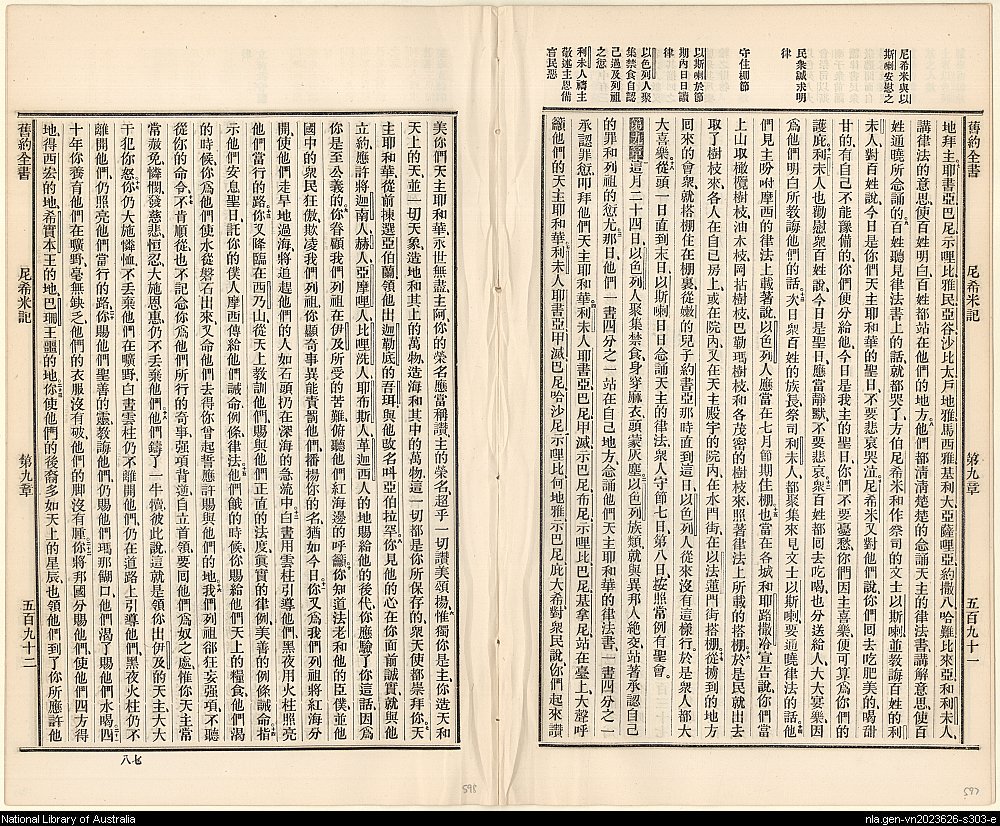 舊約全書 尼希米記 第九章 五百九十一
尼希米與以
斯喇安慰之
民衆誠求明
律
守住棚節
以斯喇於節
期內日日讀
律
以色列人聚
集禁食自認
己過及列祖
之愆
利未人禱主
敬述主恩備
言民惡
地拜主、耶書亞巴尼示哩比雅民亞谷沙比太戶地雅馬西雅基利大亞薩哩亞約撒八哈難比來亞和利未人、
講律法的意思、使百姓明白、百姓都站在他們的地方、他們都清清楚楚的念誦天主的律法書、講解意思、使百
姓通曉所念誦的、百姓聽見律法書上的話、就都哭了、方伯尼希米和作祭司的文士以斯喇、並教誨百姓的利
未人、對百姓說、今日是你們天主耶和華的聖日、不要悲哀哭泣、尼希米又對他們說、你們囘去吃肥美的、喝甜
甘的、有自己不能豫備的、你們便分給他、今日是我主的聖日、你們不要憂愁、你們因主喜樂、便可算爲你們的
護庇、利未人也勸慰衆百姓說、今日是聖日、應當靜默、不要悲哀、衆百姓都囘去吃喝、也分送給人、大大宴樂、因
爲他們明白所教誨他們的話、次日衆百姓的族長祭司利未人、都聚集來見文士以斯喇、要通曉律法的話、他
們見主吩咐摩西的律法上載著說、以色列人應當在七月節期住棚、也當在各城和耶路撒冷宣告說、你們當
上山取橄欖樹枝、油木枝、岡拈樹枝、巴勒瑪樹枝、和各茂密的樹枝來、照著律法上所載的搭棚、於是民就出去
取了樹枝來、各人在自己房上、或在院內、又在天主殿宇的院內、在水門街、在以法蓮門街搭棚、從擄到的地方
囘來的會衆、就搭棚住在棚裏、從嫩的兒子約書亞那時直到這日、以色列人從來沒有這樣行、於是衆人都大
大喜樂、從頭一日直到末日、以斯喇日日念誦天主的律法、衆人守節七日、第八日按照常例有聖會。
第九章這月二十四日、以色列人聚集禁食、身穿麻衣、頭蒙灰塵、以色列族類就與異邦人絕交、站著承認自己
的罪和列祖的愆尤、那日他們一晝四分之一、站在自己地方、念誦他們天主耶和華的律法書、一晝四分之一
承認罪愆、叩拜他們天主耶和華、利未人耶書亞巴尼甲滅示巴尼布尼示哩比巴尼基拿尼、站在臺上、大聲呼
籲他們的天主耶和華、利未人耶書亞甲滅巴尼哈沙尼示哩比何地雅示巴尼庇大希對衆民說、你們起來讚
美你們天主耶和華、永世無盡、主阿、你的榮名應當稱讚、主的榮名超乎一切讚美頌揚、惟獨你是主、你造天和
天上的天、並一切天象、造地和其上的萬物、造海和其中的萬物、這一切都是你所保存的、衆天使都崇拜你、天
主耶和華、從前揀選亞伯蘭、領他出迦勒底的吾珥、與他改名呌亞伯拉罕、你見他的心在你面前誠實、就與他
立約、應許將迦南人赫人亞摩哩人比哩洗人耶布斯人革迦西人的地賜給他的後代、你應驗了你這話、因爲
你是至公義的、你眷顧我們列祖在伊及所受的苦難、俯聽他們紅海邊的呼籲、你知道法老和他的臣僕並他
國中的衆民、狂傲欺凌我們列祖、你顯奇事異能責罰他們、播揚你的名、猶如今日、你又爲我們列祖將紅海分
開、使他們走旱地過海、將追趕他們的人、如石頭扔在深海的急流中、白晝用雲柱引導他們、黑夜用火柱照亮
他們當行的路、你又降臨在西乃山、從天上敎訓他們、賜與他們正直的法度、眞實的律例、美善的例條誡命、指
示他們安息聖日、託你的僕人摩西傳給他們誡命例條律法、他們餓的時候、你賜給他們天上的糧食、他們渴
的時候、你爲他們使水從磐石出來、又命他們去得你曾起誓應許賜與他們的地、我們列祖卻狂妄強項、不聽
從你的命令、不肯順從、也不記念你爲他們所行的奇事、強項背逆、自立首領、要囘他們爲奴之處、惟你天主常
常赦免、憐憫發慈悲、恒忍大施恩惠、仍不丟棄他們、他們鑄了一牛犢、彼此說、這就是領你出伊及的天主、大大
干犯你怒、你仍大施憐恤、不丟棄他們在曠野、白晝雲柱仍不離開他們、仍在道路上引導他們、黑夜火柱仍不
離開他們、仍照亮他們當行的路、你賜他們聖善的靈敎誨他們、仍賜他們瑪那餬口、他們渴了賜他們水喝、四
十年你養育他們在曠野、毫無缺乏、他們的衣服沒有破、他們的脚沒有腫、你將邦國分賜他們、使他們四方得
地、得西宏的地、希實本王的地、巴珊王噩的地、你使他們的後裔多如天上的星辰、也領他們到了你所應許他
舊約全書 尼希米記 第九章 五百九十二
八七
598
597
National Library of Australia
nla.gen-vn2023626-s303-e